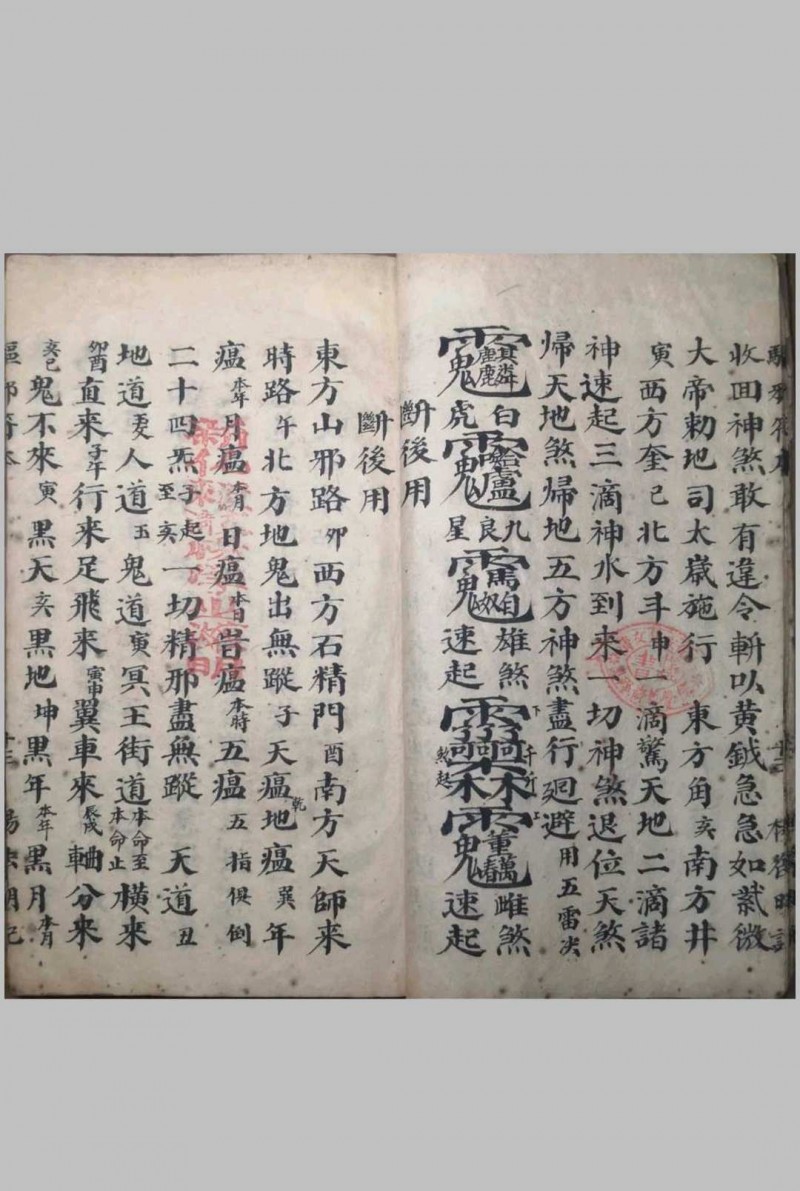 收回神煞敢有違令斬以黄鉞急急如紫微
大帝勅地司太歲施行 東方角亥南方井
寅西方奎巳北方斗申一滴驚天地二滴諸
神速起三滴神水到来一切神煞退位天煞
帰天地煞帰地五方神煞盡行廻避用五雷决
白 九良 雄煞 雌煞
虎 星 速起 速起
斷後用
斷後用
東方山邪路卯西方石精門酉南方天師来
時路午北方地鬼出無蹤子天瘟乾地瘟巽年
瘟本年月瘟本月日瘟本日旹瘟本時五瘟五指俱倒
二十四炁子起至亥一切精邪盡無蹤 天道丑
地道人道玉鬼道寅冥王街道本命至本命止横来
卯酉直来子午行来足飛来寅申翼車来辰戌軸分来
亥巳鬼不來寅黒天亥黒地坤黒年本年黒月本月